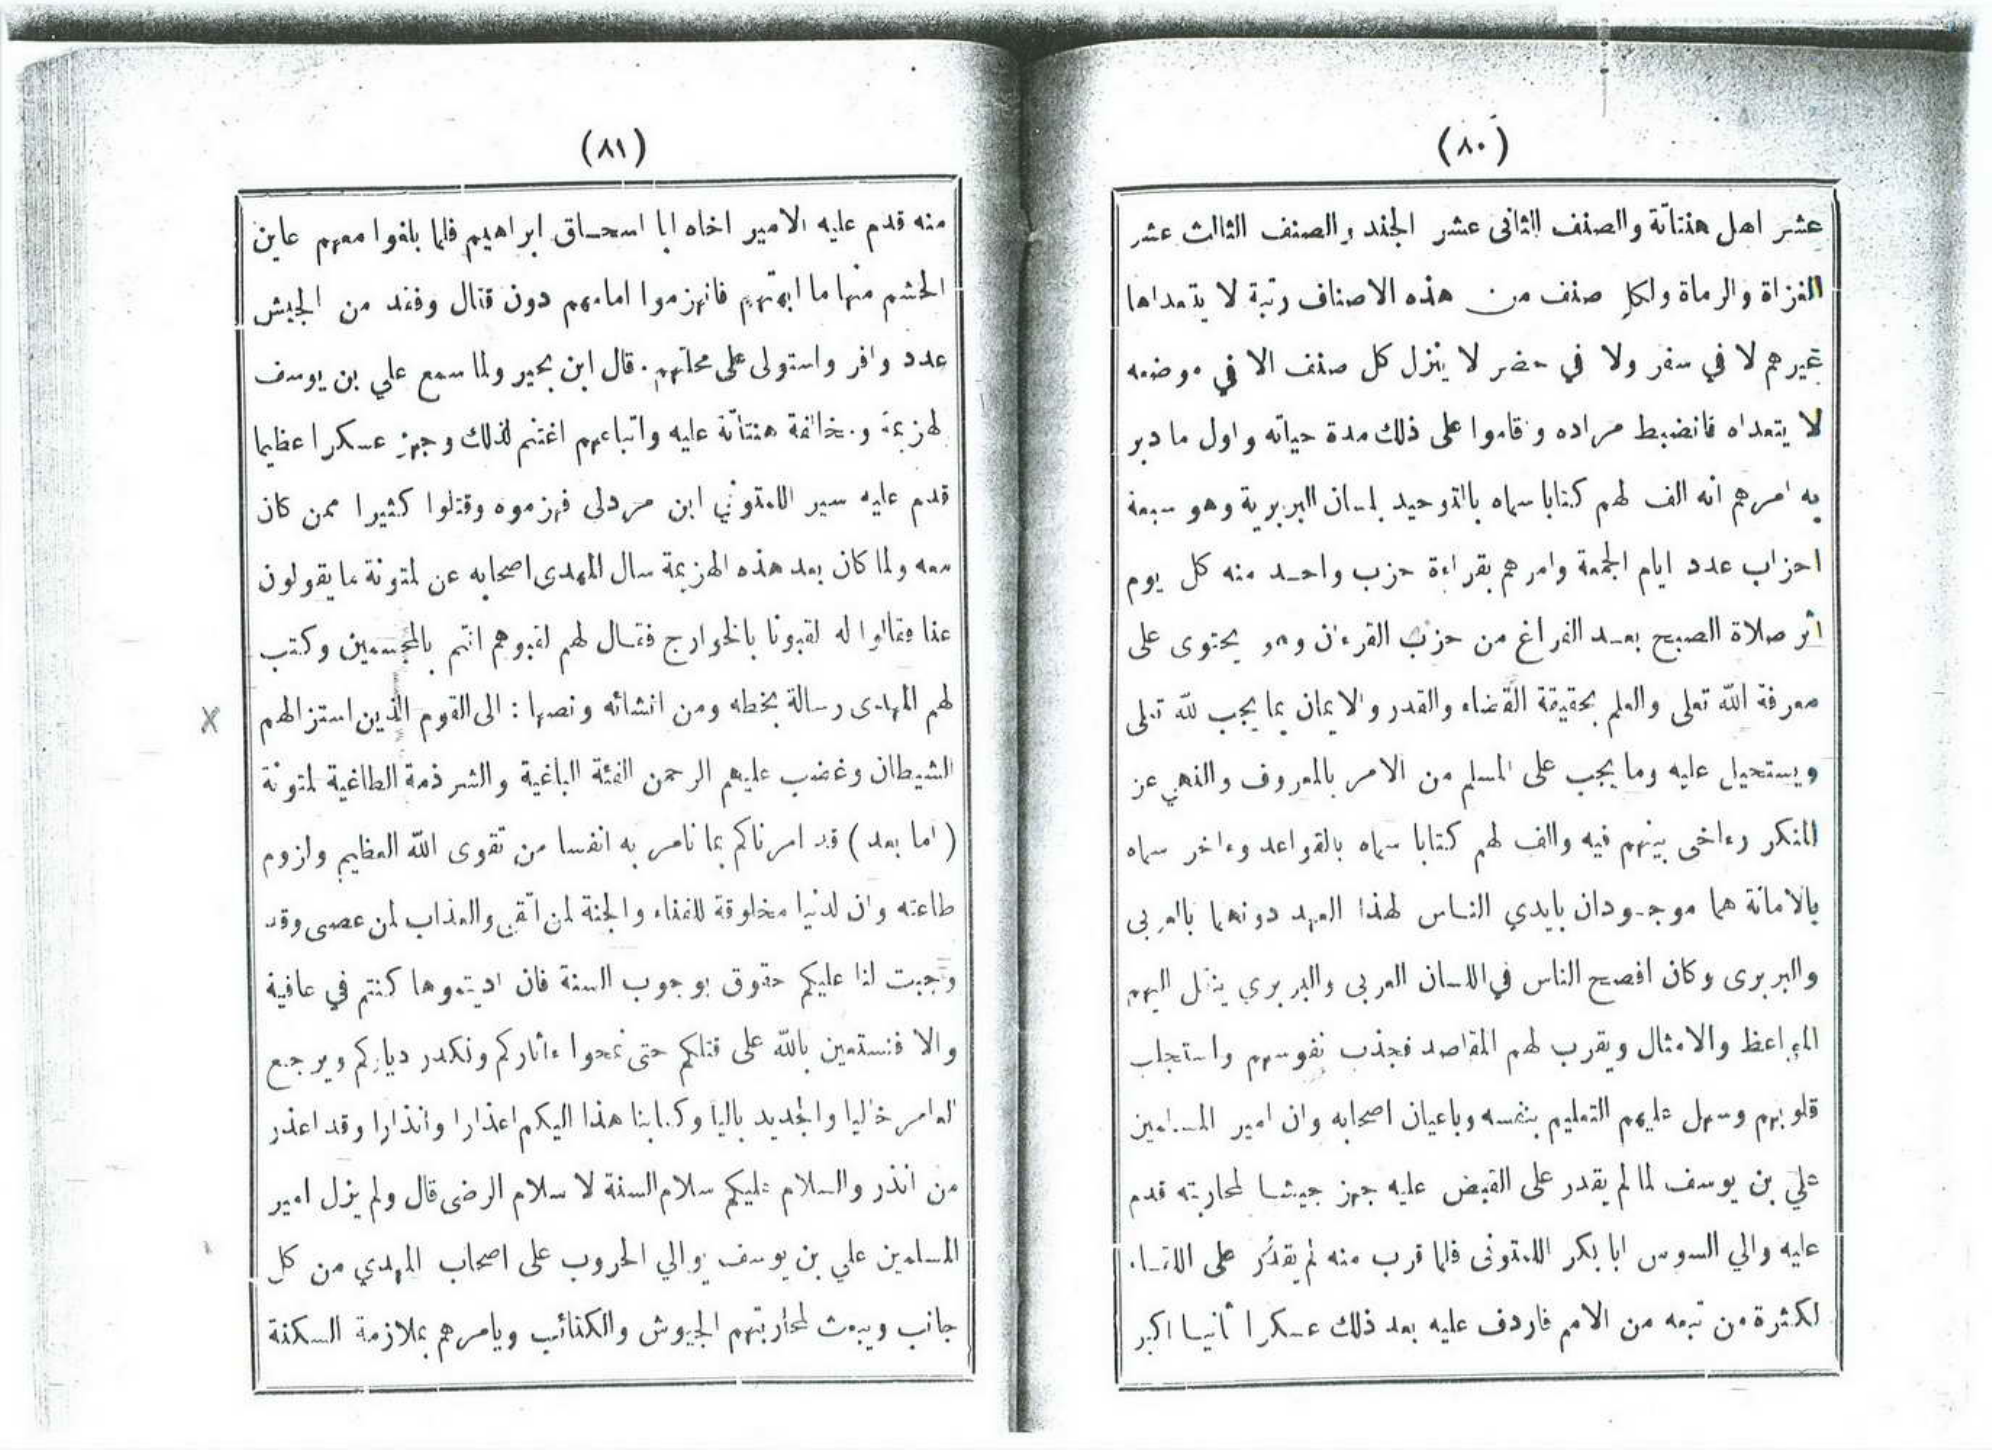 (٨٠)
عشر اهل هنتاتة والصنف الثانى عشر الجند والصنف الثالث عشر
الغزاة والرماة ولكل صنف من هذه الاصناف رتبة لا يتعداها
غيرهم لا في سفر ولا في حضر لا ينزل كل صنف الا في موضعه
لا يتعداه فانضبط مراده وقاموا على ذلك مدة حياته واول ما دبر
به امرهم انه الف لهم كتابا سماه بالتوحيد بلسان البربرية وهو سبعة
احزاب عدد ايام الجمعة وامرهم بقراءة حزب واحد منه كل يوم
اثر صلاة الصبح بعد الفراغ من حزب القرءان وهو يحتوى على
معرفة الله تعلى والعلم بحقيقة القضاء والقدر والايمان بما يجب لله تعلى
ويستحيل عليه وما يجب على المسلم من الامر بالمعروف والنهي عن
المنكر وءاخى بينهم فيه والف لهم كتابا سماه بالقواعد وءاخر سماه
بالامانة هما موجودان بايدي الناس لهذا العهد دونهما بالعربى
والبربرى وكان افصح الناس في اللسان العربى والبربري ينقل اليهم
المواعظ والامثال ويقرب لهم المقاصد فجذب نفوسهم واستجلب
قلوبهم وسهل عليهم التعليم بنفسه وباعيان اصحابه وان امير المسلمين
علي بن يوسف لما لم يقدر على القبض عليه جهز جيشا لمحاربته قدم
عليه والي السوس ابا بكر اللمتونى فلما قرب منه لم يقدر على اللقاء
لكثرة من تبعه من الامم فاردف عليه بعد ذلك عسكرا ثانيا اكبر
(٨١)
منه قدم عليه الامير اخاه ابا اسحاق ابراهيم فلما بلغوا معهم عاين
الحشم منها ما ابهتهم فانهزموا امامهم دون قتال وفقد من الجيش
عدد وافر واستولى على محلتهم. قال ابن بجير ولما سمع علي بن يوسف
لهزيمة ومخالفة هنتاتة عليه واتباعهم اغتنم لذلك وجهز عسكرا عظيما
قدم عليه سير اللمتوني ابن مردلى فهزموه وقتلوا كثيرا ممن كان
معه ولما كان بعد هذه الهزيمة سال المهدى اصحابه عن لمتونة ما يقولون
عنا فقالوا له لقبونا بالخوارج فقال لهم لقبوهم انتم بالمجسمين وكتب
لهم المهدى رسالة بخطه ومن انشائه ونصها : الى القوم الذين استزالهم
الشيطان وغضب عليهم الرحمن الفئة الباغية والشرذمة الطاغية لمتونة
(اما بعد) قد امرناكم بما نامر به انفسا من تقوى الله العظيم ولزوم
طاعته وان لدنيا مخلوقة للفناء والجنة لمن اتقى والعذاب لمن عصى وقد
وجبت لنا عليكم حقوق بوجوب السنة فان اديتموها كنتم في عافية
والا فنستعين بالله على قتلكم حتى نمحوا ءاثاركم ونكدر دياركم ويرجع
العامر خاليا والجديد باليا وكتابنا هذا اليكم اعذارا وانذارا وقد اعذر
من انذر والسلام عليكم سلام السنة لا سلام الرضى قال ولم يزل امير
المسلمين علي بن يوسف يوالي الحروب على اصحاب المهدي من كل
جانب ويبعث لمحاربتهم الجيوش والكتائب ويامرهم بملازمة السكنة